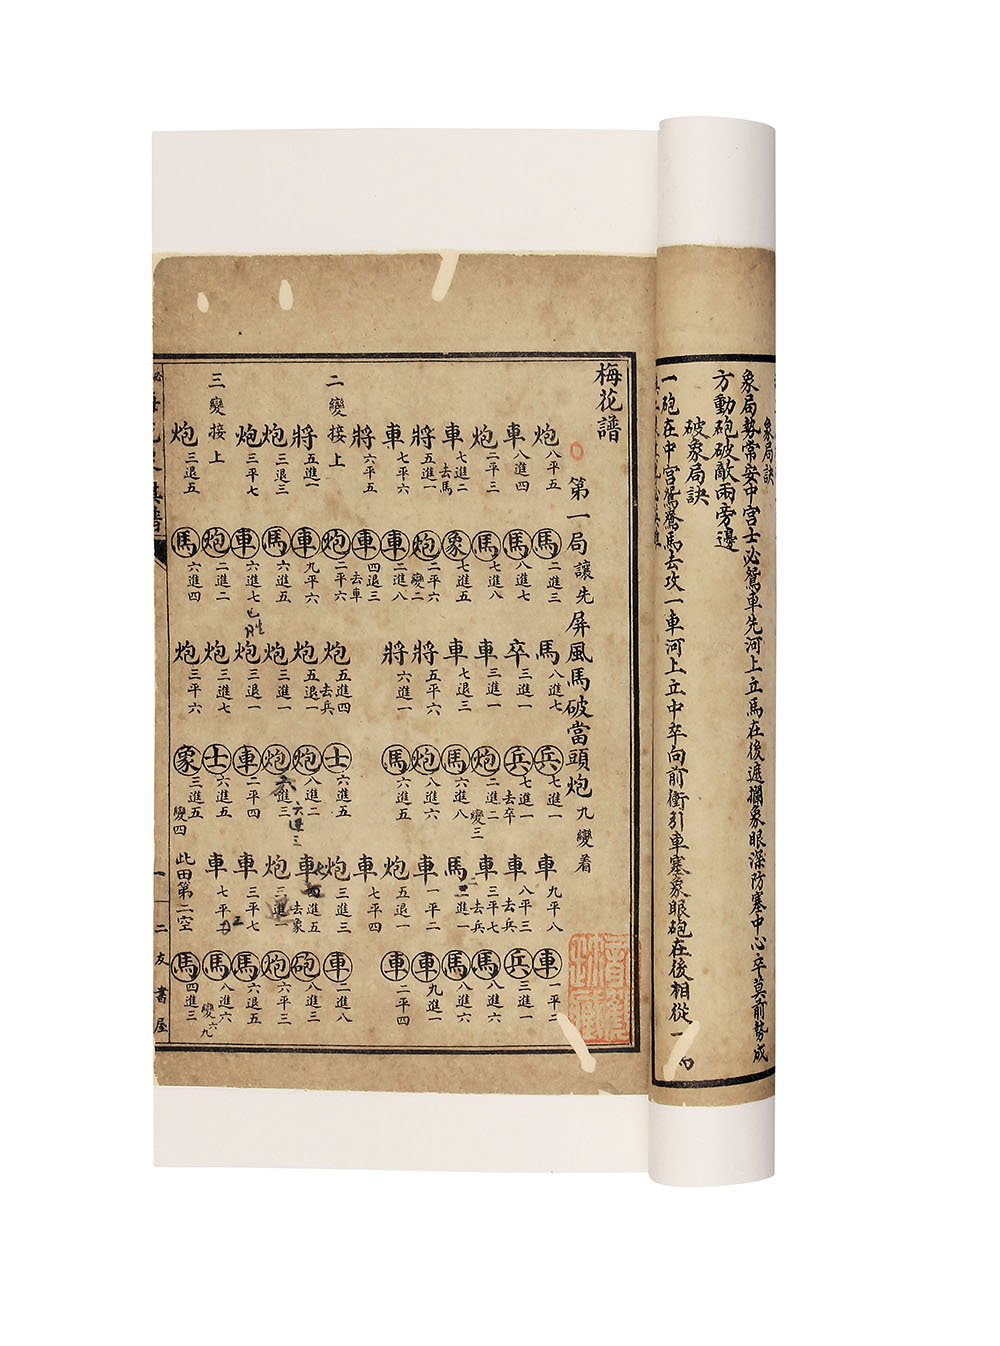 象局訣
象局勢常安中宮士必鴛車先河上立馬在後遮攔象眼深防塞中心卒莫前勢成
方動砲破敵兩旁邊
破象局訣
一砲在中宮鴛鴦馬去攻一車河上立中卒向前衝引車塞象眼砲在後相從一馬
梅花譜
第一局 讓先 屏風馬破當頭炮 九變着
炮八平五 馬二進三 馬八進七 兵七進一 車九平八 車一平二
車八進四 馬八進七 卒三進一 兵七進一去卒 車八平三去兵 兵三進一
炮二平三 馬七進八 車三進一 炮二進二變三 車三平七去兵 馬八進六
車七進二去馬 象七進五 車七退三 馬六進八 馬二進一 馬八進六
將五進一 炮二平六變二 將五平六 炮八進六 車一平二 車九進一
車七平六 車二進八 將六進一 馬六進五 炮五退一 車二平四
將六平五 車四退三去車 車七平四
二變接上 炮二平六 炮五進四去兵 士六進五 炮三進三 車二進八
將五進一 車九平六 炮五退一 炮八進二 車四進五去象 砲八進三
炮三退三 馬六進五 炮三進一 炮六進三 炮三進一 炮六平三
炮三平七 車六進七 炮三退一 車二平四 車三平七 馬六退五
三變接上 炮二進二 炮三進七 士六進五 車七平 馬八進六 變六九
炮三退五 馬六進四 炮三平六 象三進五變四 此田第二空 馬四進三
一 二友書屋